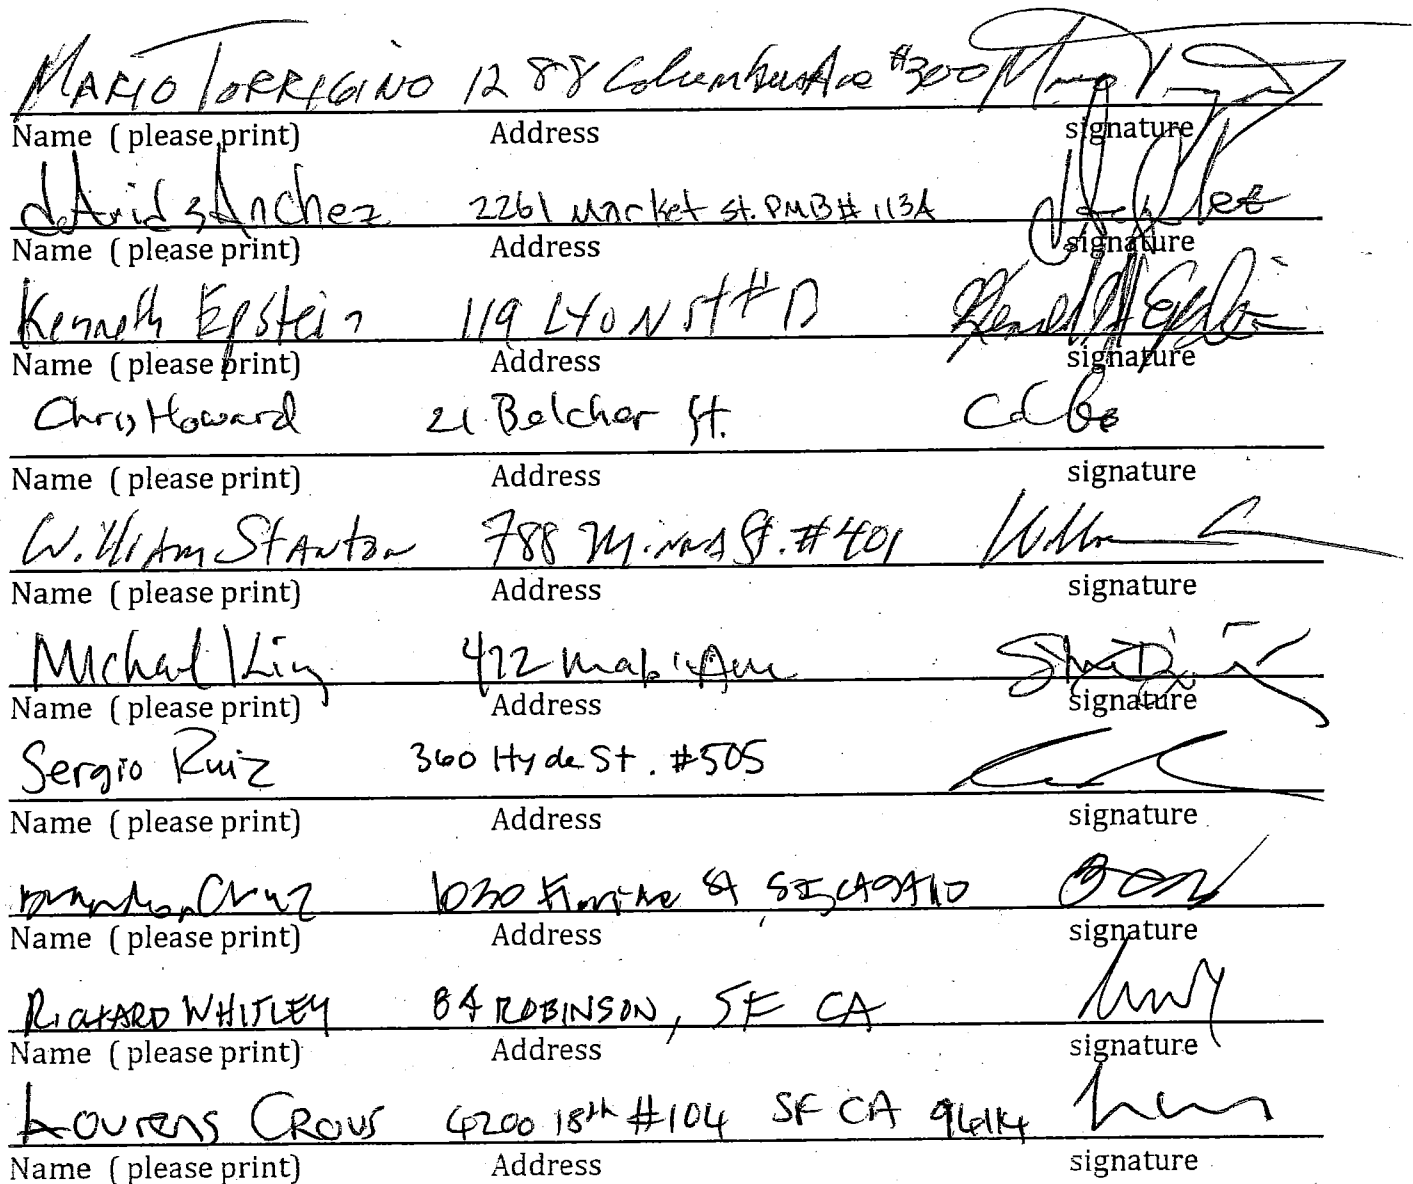 MARIO TORRIGINO 1288 Columbus Ave #300
Name ( please print) Address signature
david sAnchez 2261 Market st. PMB# 113A
Name ( please print) Address signature
Kenneth Epstein 119 LYON St # D
Name ( please print) Address signature
Chris Howard 21 Belcher St.
Name ( please print) Address signature
William Stanton 788 Minna St. #401
Name ( please print) Address signature
Michael King 472
Name ( please print) Address signature
Sergio Ruiz 360 Hyde St. #505
Name ( please print) Address signature
Cruz 1030 St SF, CA 94110
Name ( please print) Address signature
RICHARD WHITLEY 84 ROBINSON, SF CA
Name ( please print) Address signature
Lourens CROUS 4200 18th #104 SF CA 94114
Name ( please print) Address signature